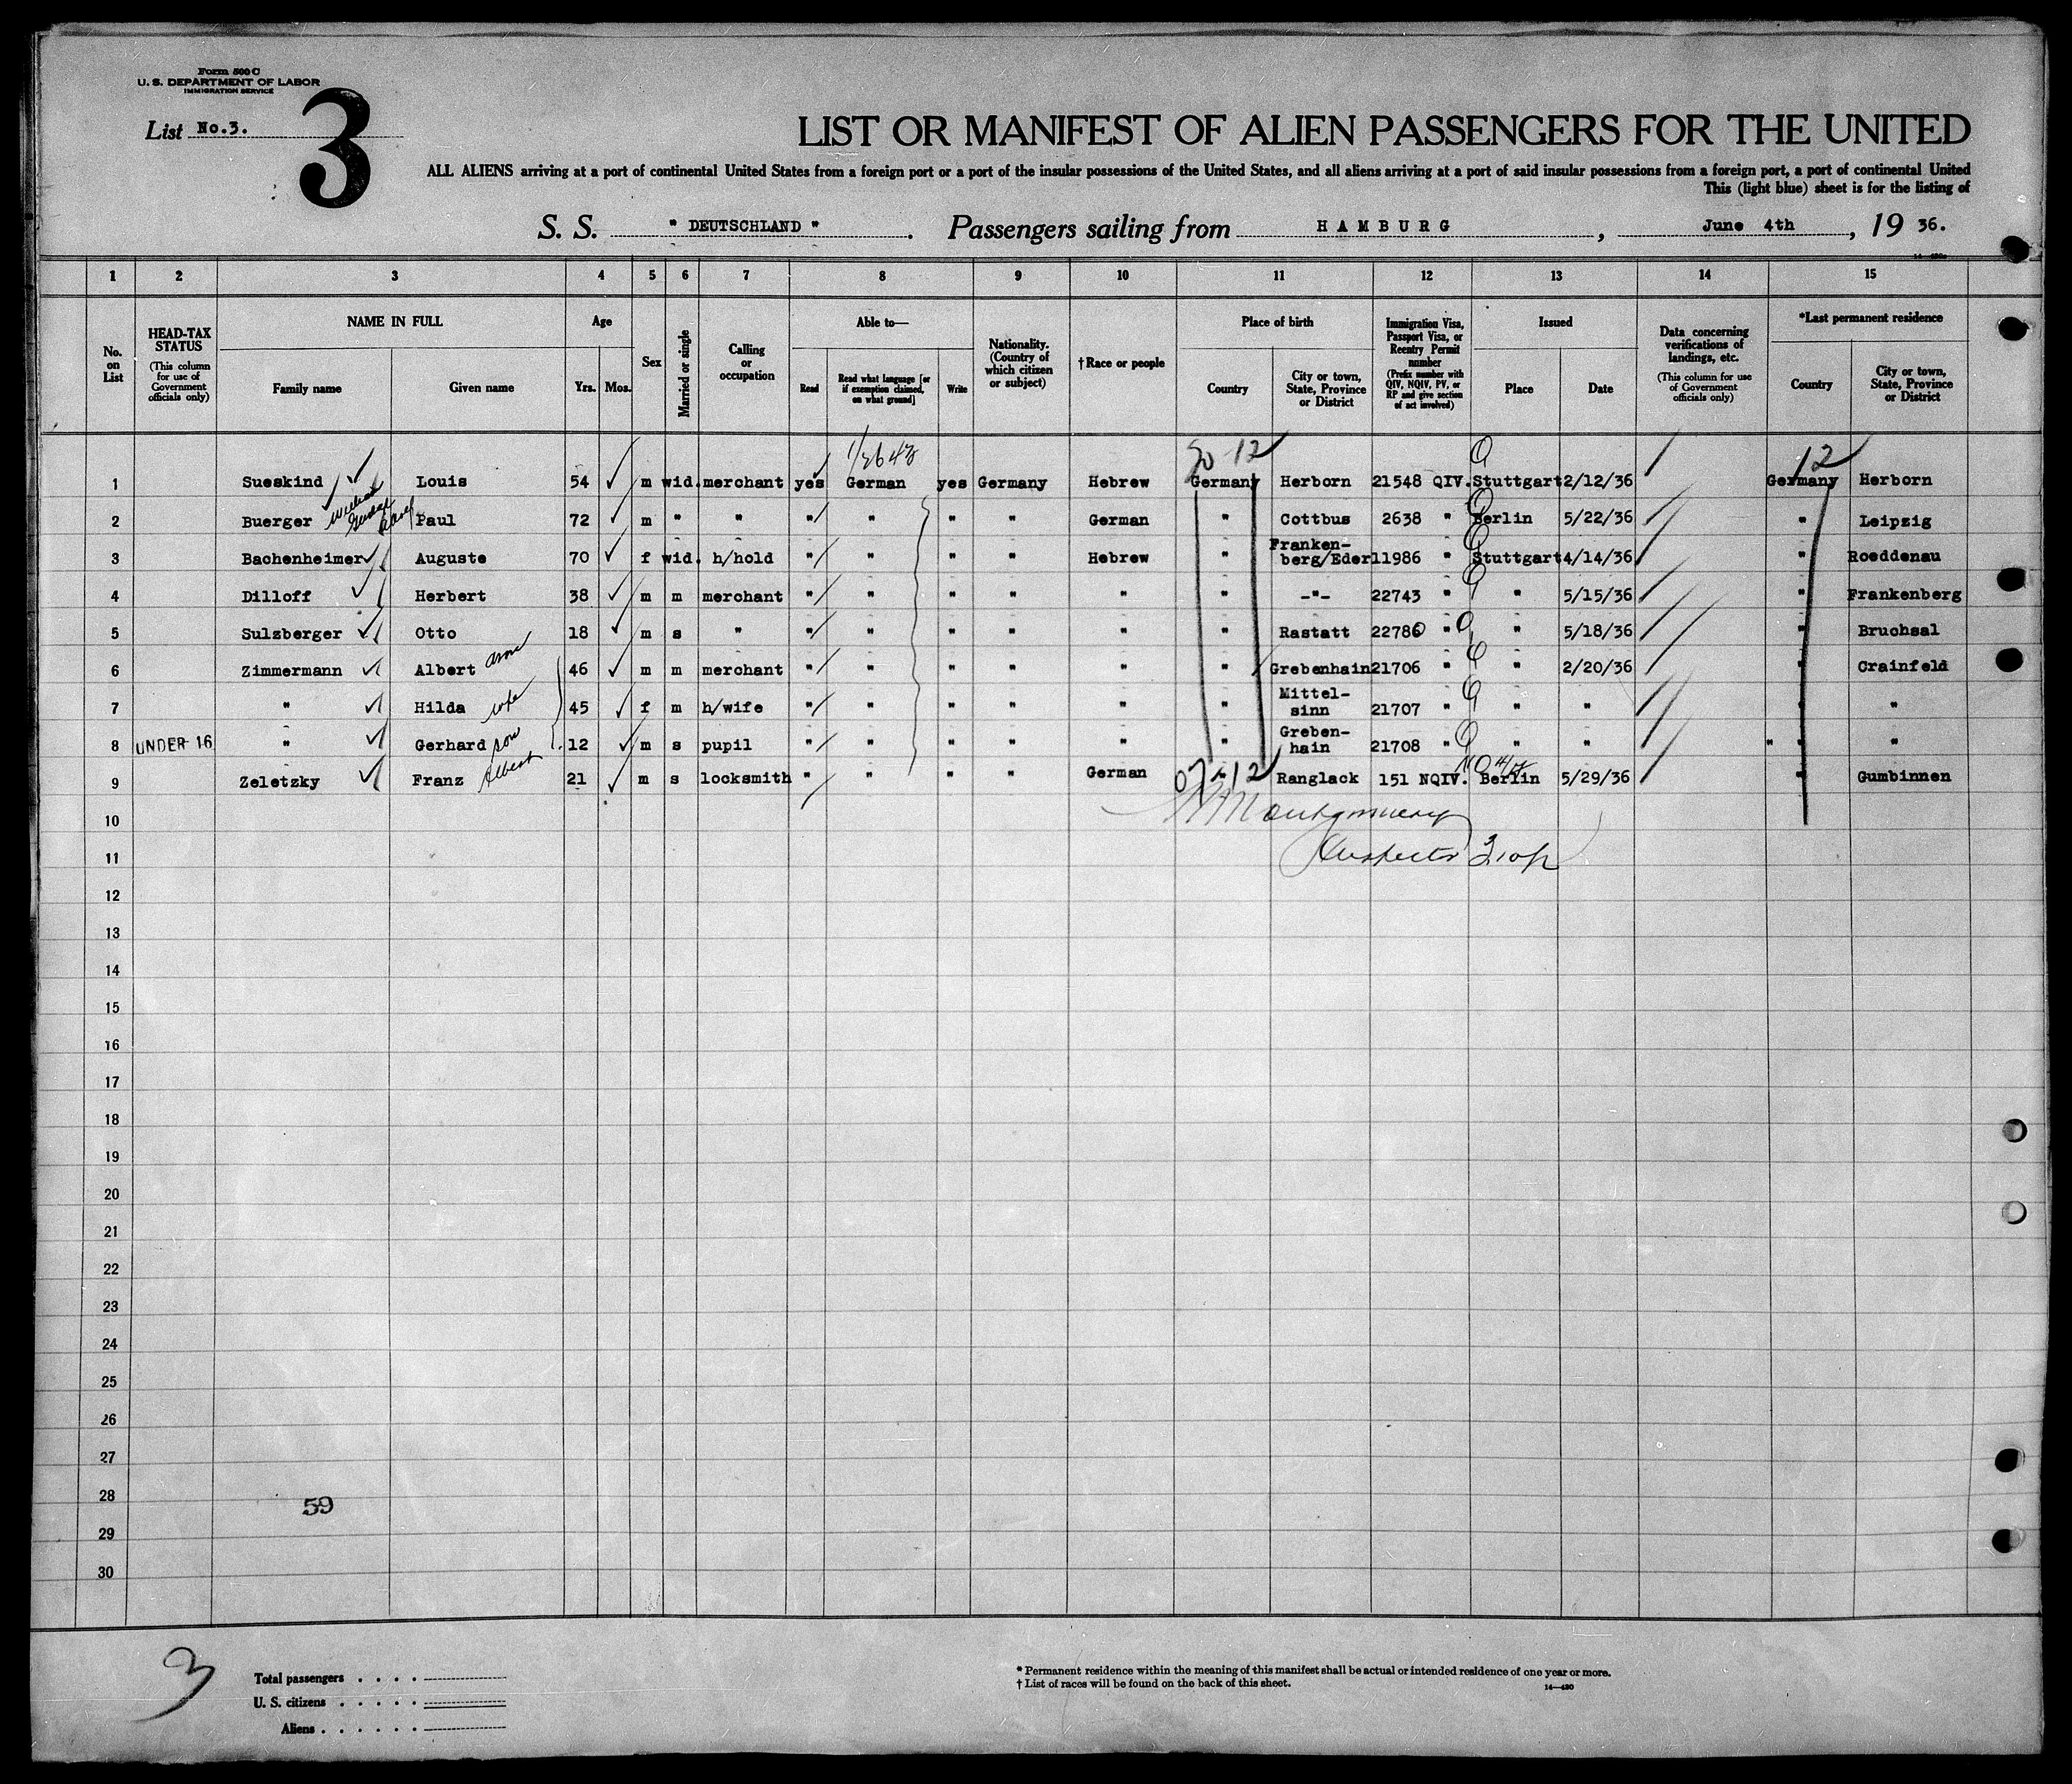 Form 500 C
U. S. DEPARTMENT OF LABOR
IMMIGRATION SERVICE
List No.3.
3
LIST OR MANIFEST OF ALIEN PASSENGERS FOR THE UNITED
ALL ALIENS arriving at a port of continental United States from a foreign port or a port of the insular possessions of the United States, and all aliens arriving at a port of said insular possessions from a foreign port, a port of continental United
This (light blue) sheet is for the listing of
S. S. " DEUTSCHLAND " . Passengers sailing from HAMBURG , June 4th , 19 36.
1 2 3 4 5 6 7 8 9 10 11 12 13 14 15
No. on List
HEAD-TAX STATUS (This column for use of Government officials only)
NAME IN FULL
Family name Given name
Age
Yrs. Mos.
Sex
Married or single
Calling or occupation
Able to—
Read Read what language [or if exemption claimed, on what ground] Write
Nationality. (Country of which citizen or subject)
†Race or people
Place of birth
Country City or town, State, Province or District
Immigration Visa, Passport Visa, or Reentry Permit number (Prefix number with QIV, NQIV, PV, or RP and give section of act involved)
Issued
Place Date
Data concerning verifications of landings, etc. (This column for use of Government officials only)
*Last permanent residence
Country City or town, State, Province or District
12 12
1 Sueskind Louis 54 m wid. merchant yes German yes Germany Hebrew Germany Herborn 21548 QIV. Stuttgart 2/12/36 Germany Herborn
2 Buerger Paul 72 m " " " " " " German " Cottbus 2638 " Berlin 5/22/36 " Leipzig
3 Bachenheimer Auguste 70 f wid. h/hold " " " " Hebrew " Franken-berg/Eder 11986 " Stuttgart 4/14/36 " Roeddenau
4 Dilloff Herbert 38 m m merchant " " " " " " -"- 22743 " " 5/15/36 " Frankenberg
5 Sulzberger Otto 18 m s " " " " " " " Rastatt 22786 " " 5/18/36 " Bruchsal
6 Zimmermann Albert 46 m m merchant " " " " " " Grebenhain 21706 " " 2/20/36 " Crainfeld
7 " Hilda wife 45 f m h/wife " " " " " " Mittel-sinn 21707 " " " " "
8 UNDER 16 " Gerhard son 12 m s pupil " " " " " " Greben-hain 21708 " " " " "
9 Zeletzky Franz Albert 21 m s locksmith " " " " German " Ranglack 151 NQIV. Berlin 5/29/36 " Gumbinnen
10 Montgomery
11 Inspector
12
13
14
15
16
17
18
19
20
21
22
23
24
25
26
27
28
59
29
30
3
Total passengers . . . .
U. S. citizens . . . . .
Aliens . . . . . .
* Permanent residence within the meaning of this manifest shall be actual or intended residence of one year or more.
† List of races will be found on the back of this sheet.
14—430